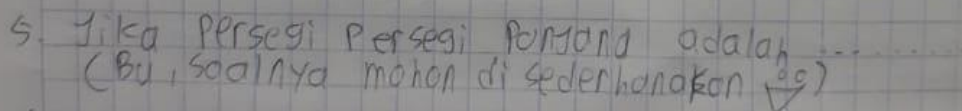 5. Jika persegi persegi Panjang adalah ......
(Bu, soalnya mohon di sederhanakan)